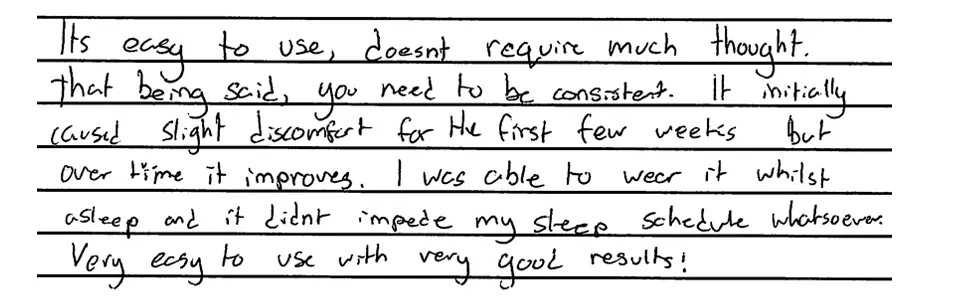 Its easy to use, doesnt require much thought.
That being said, you need to be consistent. It initially
caused slight discomfort for the first few weeks but
over time it improves. I was able to wear it whilst
asleep and it didnt impede my sleep schedule whatsoever.
Very easy to use with very good results!